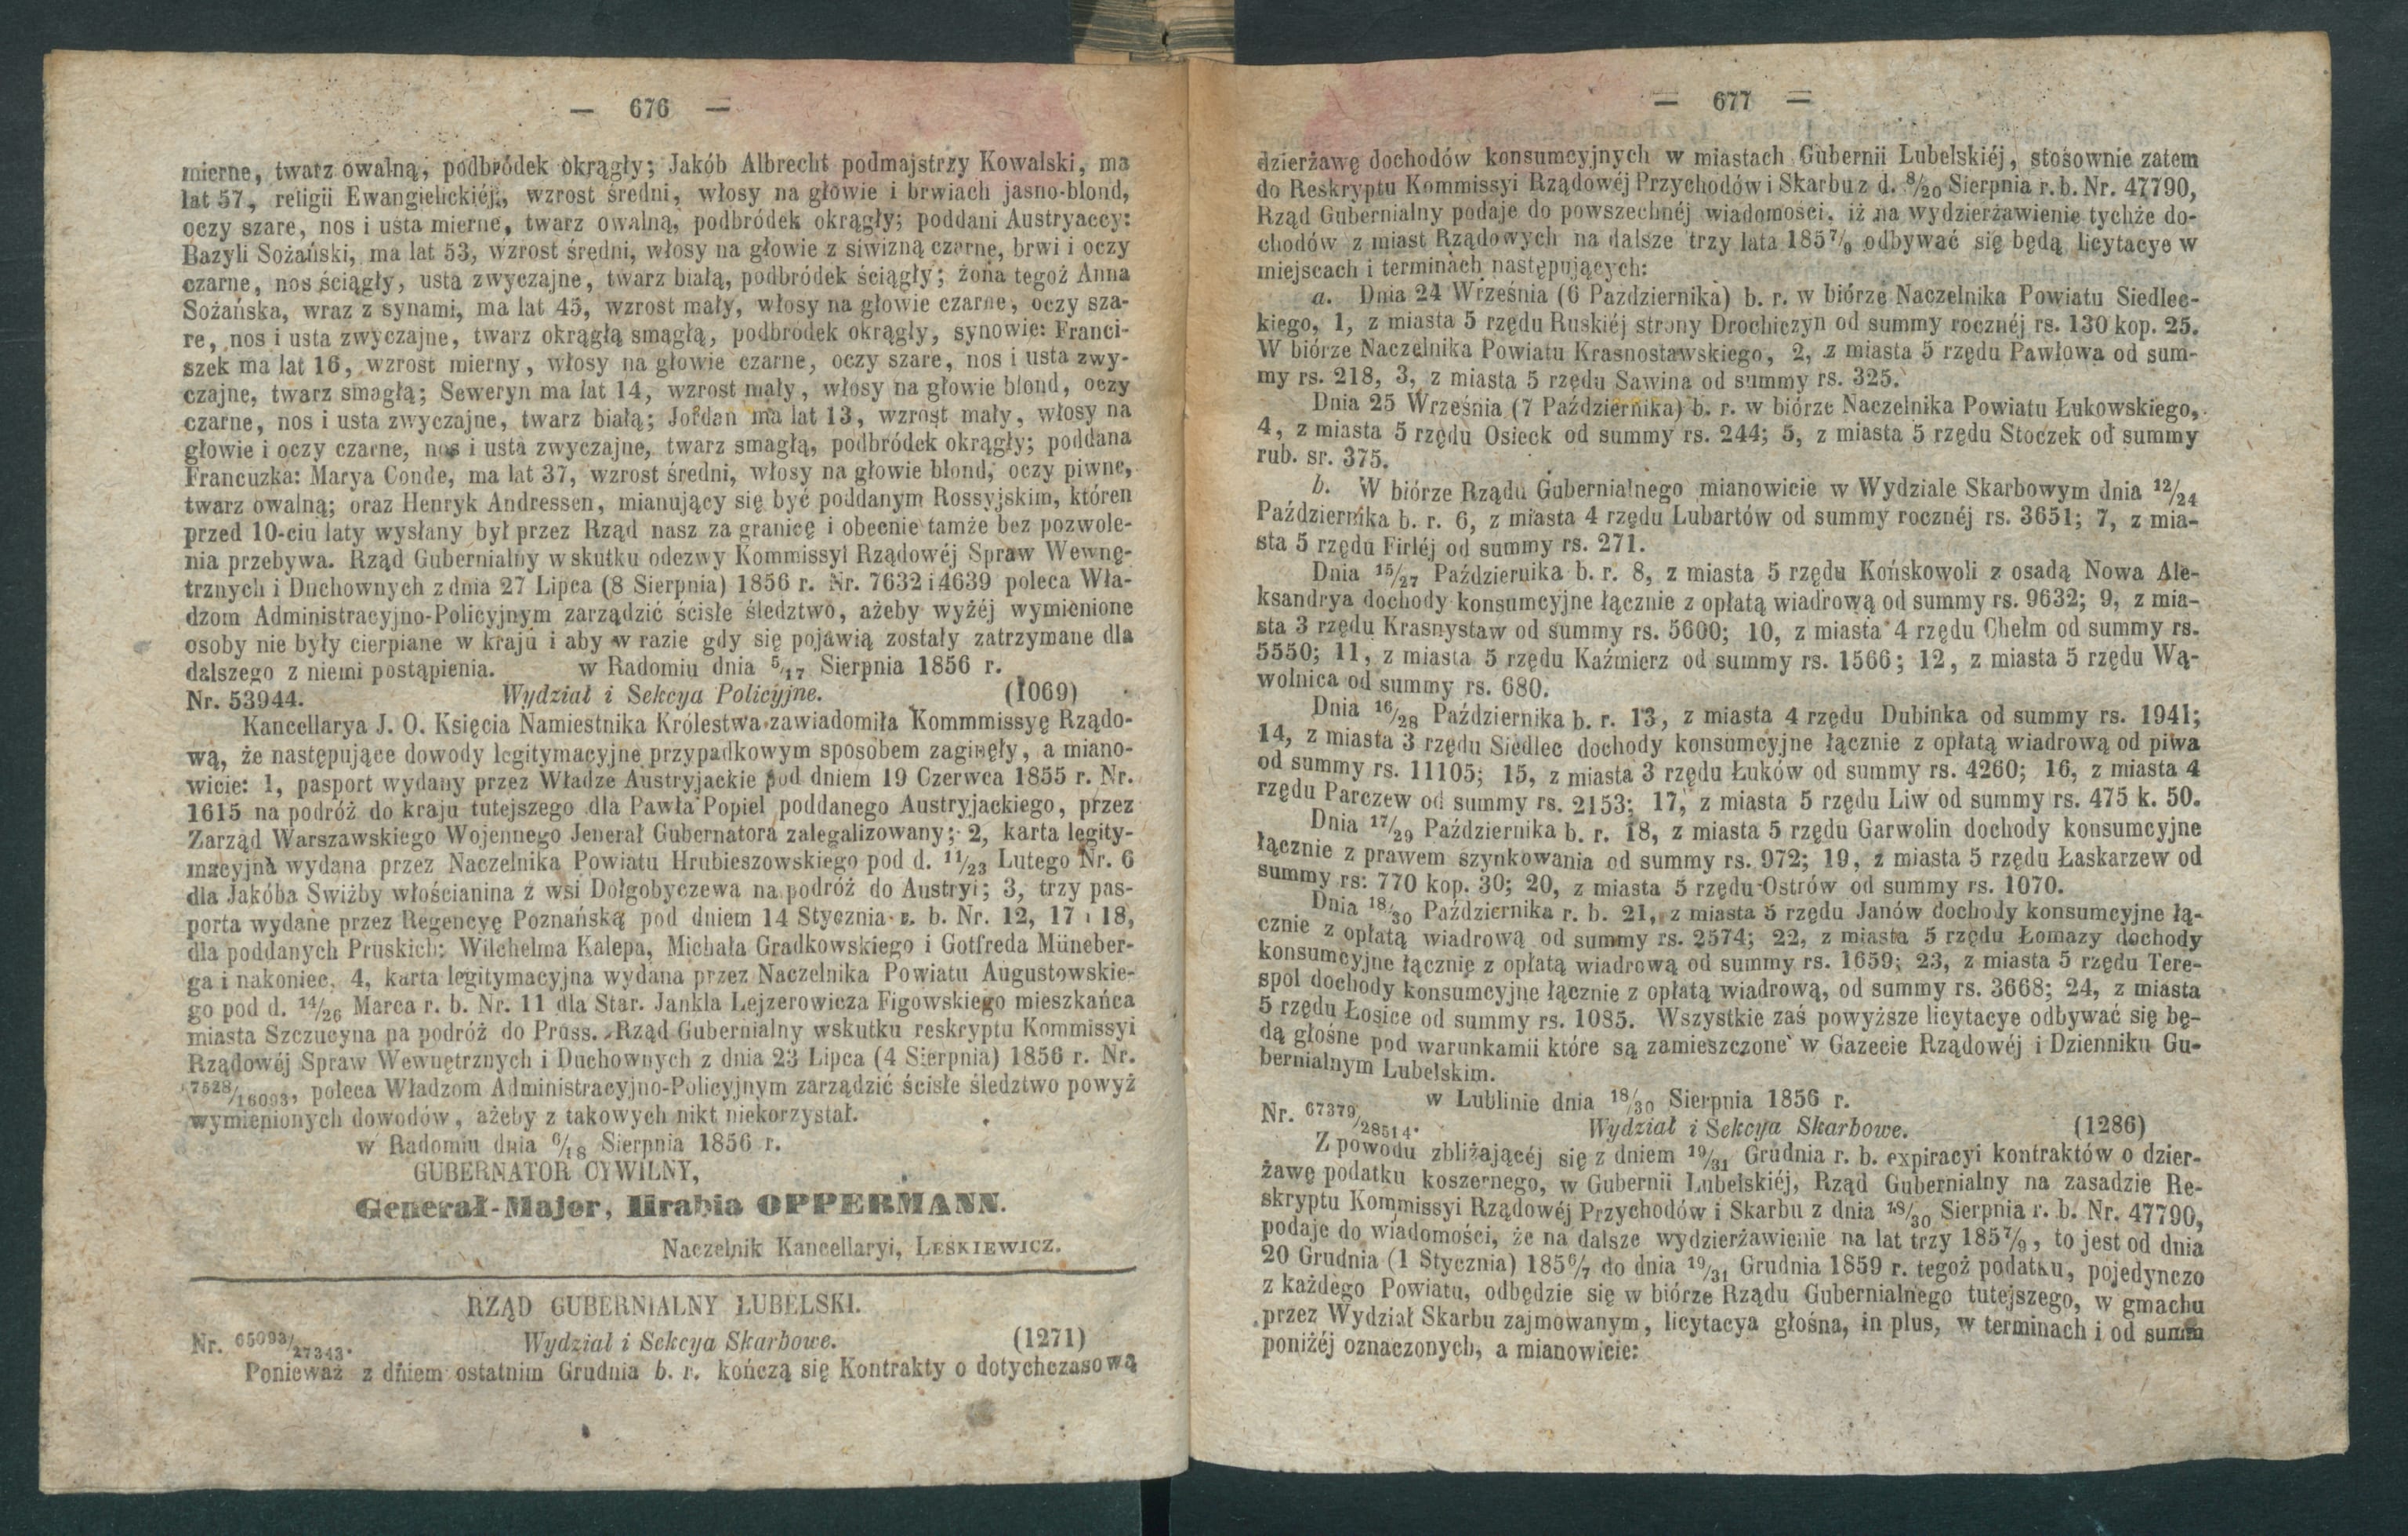 — 676 —
mierne, twarz owalną, podbródek okrągły; Jakób Albrecht podmajstrzy Kowalski, ma
lat 57, religii Ewangielickiéj, wzrost średni, włosy na głowie i brwiach jasno-blond,
oczy szare, nos i usta mierne, twarz owalną, podbródek okrągły; poddani Austryaccy:
Bazyli Sożański, ma lat 53, wzrost średni, włosy na głowie z siwizną czarne, brwi i oczy
czarne, nos ściągły, usta zwyczajne, twarz białą, podbródek ściągły; żona tegoż Anna
Sożańska, wraz z synami, ma lat 45, wzrost mały, włosy na głowie czarne, oczy sza-
re, nos i usta zwyczajne, twarz okrągłą smągłą, podbródek okrągły, synowie: Franci-
szek ma lat 16, wzrost mierny, włosy na głowie czarne, oczy szare, nos i usta zwy-
czajne, twarz smagłą; Seweryn ma lat 14, wzrost mały, włosy na głowie blond, oczy
czarne, nos i usta zwyczajne, twarz białą; Jordan ma lat 13, wzrost mały, włosy na
głowie i oczy czarne, nos i usta zwyczajne, twarz smagłą, podbródek okrągły; poddana
Francuzka: Marya Conde, ma lat 37, wzrost średni, włosy na głowie blond, oczy piwne,
twarz owalną; oraz Henryk Andressen, mianujący się być poddanym Rossyjskim, któren
przed 10-ciu laty wysłany był przez Rząd nasz za granicę i obecnie tamże bez pozwole-
nia przebywa. Rząd Gubernialny w skutku odezwy Kommissyi Rządowéj Spraw Wewnę-
trznych i Duchownych z dnia 27 Lipca (8 Sierpnia) 1856 r. Nr. 7632 i 4639 poleca Wła-
dzom Administracyjno-Policyjnym zarządzić ścisłe śledztwo, ażeby wyżéj wymienione
osoby nie były cierpiane w kraju i aby w razie gdy się pojawią zostały zatrzymane dla
dalszego z niemi postąpienia. w Radomiu dnia 5/17 Sierpnia 1856 r.
Nr. 53944. Wydział i Sekcya Policyjne. (1069)
Kancellarya J. O. Księcia Namiestnika Królestwa zawiadomiła Kommmissyę Rządo-
wą, że następujące dowody legitymacyjne przypadkowym sposobem zaginęły, a miano-
wicie: 1, pasport wydany przez Władze Austryjackie pod dniem 19 Czerwca 1855 r. Nr.
1615 na podróż do kraju tutejszego dla Pawła Popiel poddanego Austryjackiego, przez
Zarząd Warszawskiego Wojennego Jenerał Gubernatora zalegalizowany; 2, karta legity-
macyjna wydana przez Naczelnika Powiatu Hrubieszowskiego pod d. 11/23 Lutego Nr. 6
dla Jakóba Swiżby włościanina z wsi Dołgobyczewa na podróż do Austryi; 3, trzy pas-
porta wydane przez Regencyę Poznańską pod dniem 14 Stycznia r. b. Nr. 12, 17 i 18,
dla poddanych Pruskich: Wilchelma Kalepa, Michała Gradkowskiego i Gotfreda Müneber-
ga i nakoniec, 4, karta legitymacyjna wydana przez Naczelnika Powiatu Augustowskie-
go pod d. 14/26 Marca r. b. Nr. 11 dla Star. Jankla Lejzerowicza Figowskiego mieszkańca
miasta Szczucyna na podróż do Pruss. Rząd Gubernialny wskutku reskryptu Kommissyi
Rządowéj Spraw Wewnętrznych i Duchownych z dnia 23 Lipca (4 Sierpnia) 1856 r. Nr.
7528/16093, poleca Władzom Administracyjno-Policyjnym zarządzić ścisłe śledztwo powyż
wymienionych dowodów, ażeby z takowych nikt niekorzystał.
w Radomiu dnia 6/18 Sierpnia 1856 r.
GUBERNATOR CYWILNY,
Generał-Major, Hrabia OPPERMANN.
Naczelnik Kancellaryi, LESKIEWICZ.
RZĄD GUBERNIALNY LUBELSKI.
Nr. 65093/27343. Wydział i Sekcya Skarbowe. (1271)
Ponieważ z dniem ostatnim Grudnia b. r. kończą się Kontrakty o dotychczasową
— 677 —
dzierżawę dochodów konsumcyjnych w miastach Gubernii Lubelskiéj, stosownie zatem
do Reskryptu Kommissyi Rządowéj Przychodów i Skarbu z d. 8/20 Sierpnia r. b. Nr. 47790,
Rząd Gubernialny podaje do powszechnéj wiadomości, iż na wydzierżawienie tychże do-
chodów z miast Rządowych na dalsze trzy lata 1857/9 odbywać się będą licytacye w
miejscach i terminach następujących:
a. Dnia 24 Września (6 Pazdziernika) b. r. w biórze Naczelnika Powiatu Siedlec-
kiego, 1, z miasta 5 rzędu Ruskiéj strony Drochiczyn od summy rocznéj rs. 130 kop. 25.
W biórze Naczelnika Powiatu Krasnostawskiego, 2, z miasta 5 rzędu Pawłowa od sum-
my rs. 218, 3, z miasta 5 rzędu Sawina od summy rs. 325.
Dnia 25 Września (7 Października) b. r. w biórze Naczelnika Powiatu Łukowskiego,
4, z miasta 5 rzędu Osieck od summy rs. 244; 5, z miasta 5 rzędu Stoczek od summy
rub. sr. 375.
b. W biórze Rządu Gubernialnego mianowicie w Wydziale Skarbowym dnia 12/24
Października b. r. 6, z miasta 4 rzędu Lubartów od summy rocznéj rs. 3651; 7, z mia-
sta 5 rzędu Firléj od summy rs. 271.
Dnia 15/27 Października b. r. 8, z miasta 5 rzędu Końskowoli z osadą Nowa Ale-
ksandrya dochody konsumcyjne łącznie z opłatą wiadrową od summy rs. 9632; 9, z mia-
sta 3 rzędu Krasnystaw od summy rs. 5600; 10, z miasta 4 rzędu Chełm od summy rs.
5550; 11, z miasta 5 rzędu Kaźmierz od summy rs. 1566; 12, z miasta 5 rzędu Wą-
wolnica od summy rs. 680.
Dnia 16/28 Października b. r. 13, z miasta 4 rzędu Dubinka od summy rs. 1941;
14, z miasta 3 rzędu Siedlec dochody konsumcyjne łącznie z opłatą wiadrową od piwa
od summy rs. 11105; 15, z miasta 3 rzędu Łuków od summy rs. 4260; 16, z miasta 4
rzędu Parczew od summy rs. 2153; 17, z miasta 5 rzędu Liw od summy rs. 475 k. 50.
Dnia 17/29 Października b. r. 18, z miasta 5 rzędu Garwolin dochody konsumcyjne
łącznie z prawem szynkowania od summy rs. 972; 19, z miasta 5 rzędu Łaskarzew od
summy rs: 770 kop. 30; 20, z miasta 5 rzędu Ostrów od summy rs. 1070.
Dnia 18/30 Października r. b. 21, z miasta 5 rzędu Janów dochody konsumcyjne łą-
cznie z opłatą wiadrową od summy rs. 2574; 22, z miasta 5 rzędu Łomazy dochody
konsumcyjne łącznie z opłatą wiadrową od summy rs. 1659; 23, z miasta 5 rzędu Tere-
spol dochody konsumcyjne łącznie z opłatą wiadrową, od summy rs. 3668; 24, z miasta
5 rzędu Łosice od summy rs. 1085. Wszystkie zaś powyższe licytacye odbywać się bę-
dą głośne pod warunkamii które są zamieszczone w Gazecie Rządowéj i Dzienniku Gu-
bernialnym Lubelskim.
w Lublinie dnia 18/30 Sierpnia 1856 r.
Nr. 67379/28514. Wydział i Sekcya Skarbowe. (1286)
Z powodu zbliżającéj się z dniem 19/31 Grudnia r. b. expiracyi kontraktów o dzier-
żawę podatku koszernego, w Gubernii Lubelskiéj, Rząd Gubernialny na zasadzie Re-
skryptu Kommissyi Rządowéj Przychodów i Skarbu z dnia 18/30 Sierpnia r. b. Nr. 47790,
podaje do wiadomości, że na dalsze wydzierżawienie na lat trzy 1857/9, to jest od dnia
20 Grudnia (1 Stycznia) 1856/7 do dnia 19/31 Grudnia 1859 r. tegoż podatku, pojedynczo
z każdego Powiatu, odbędzie się w biórze Rządu Gubernialnego tutejszego, w gmachu
przez Wydział Skarbu zajmowanym, licytacya głośna, in plus, w terminach i od summ
poniżéj oznaczonych, a mianowicie: